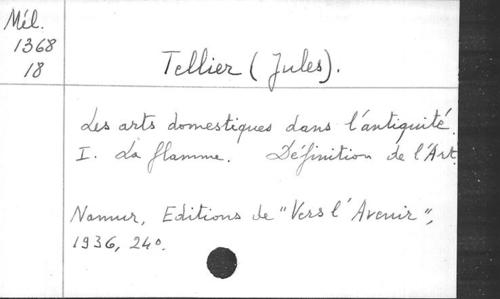 Mél.
1368
18
Tellier (Jules).
Les arts domestiques dans l'antiquité.
I. La flamme. Définition de l'Art.
Namur, Editions de "Vers l'Avenir",
1936, 24°.